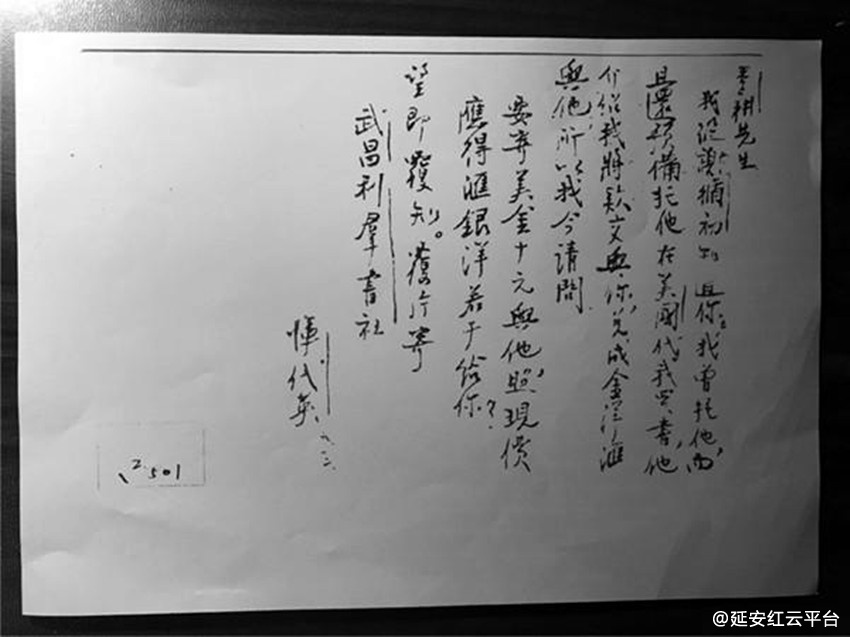 耕先生
我從謝循初知且你，我曾托他，而
且還預備托他在美國代我買書，他
介紹我將款交與你，兌成金洋匯
與他，所以我今請問
要寄美金十元與他，照現價
應得匯銀洋若干給你？
望即覆知。覆片寄
武昌利羣書社
惲代英 六、三、
2.501
@延安红云平台